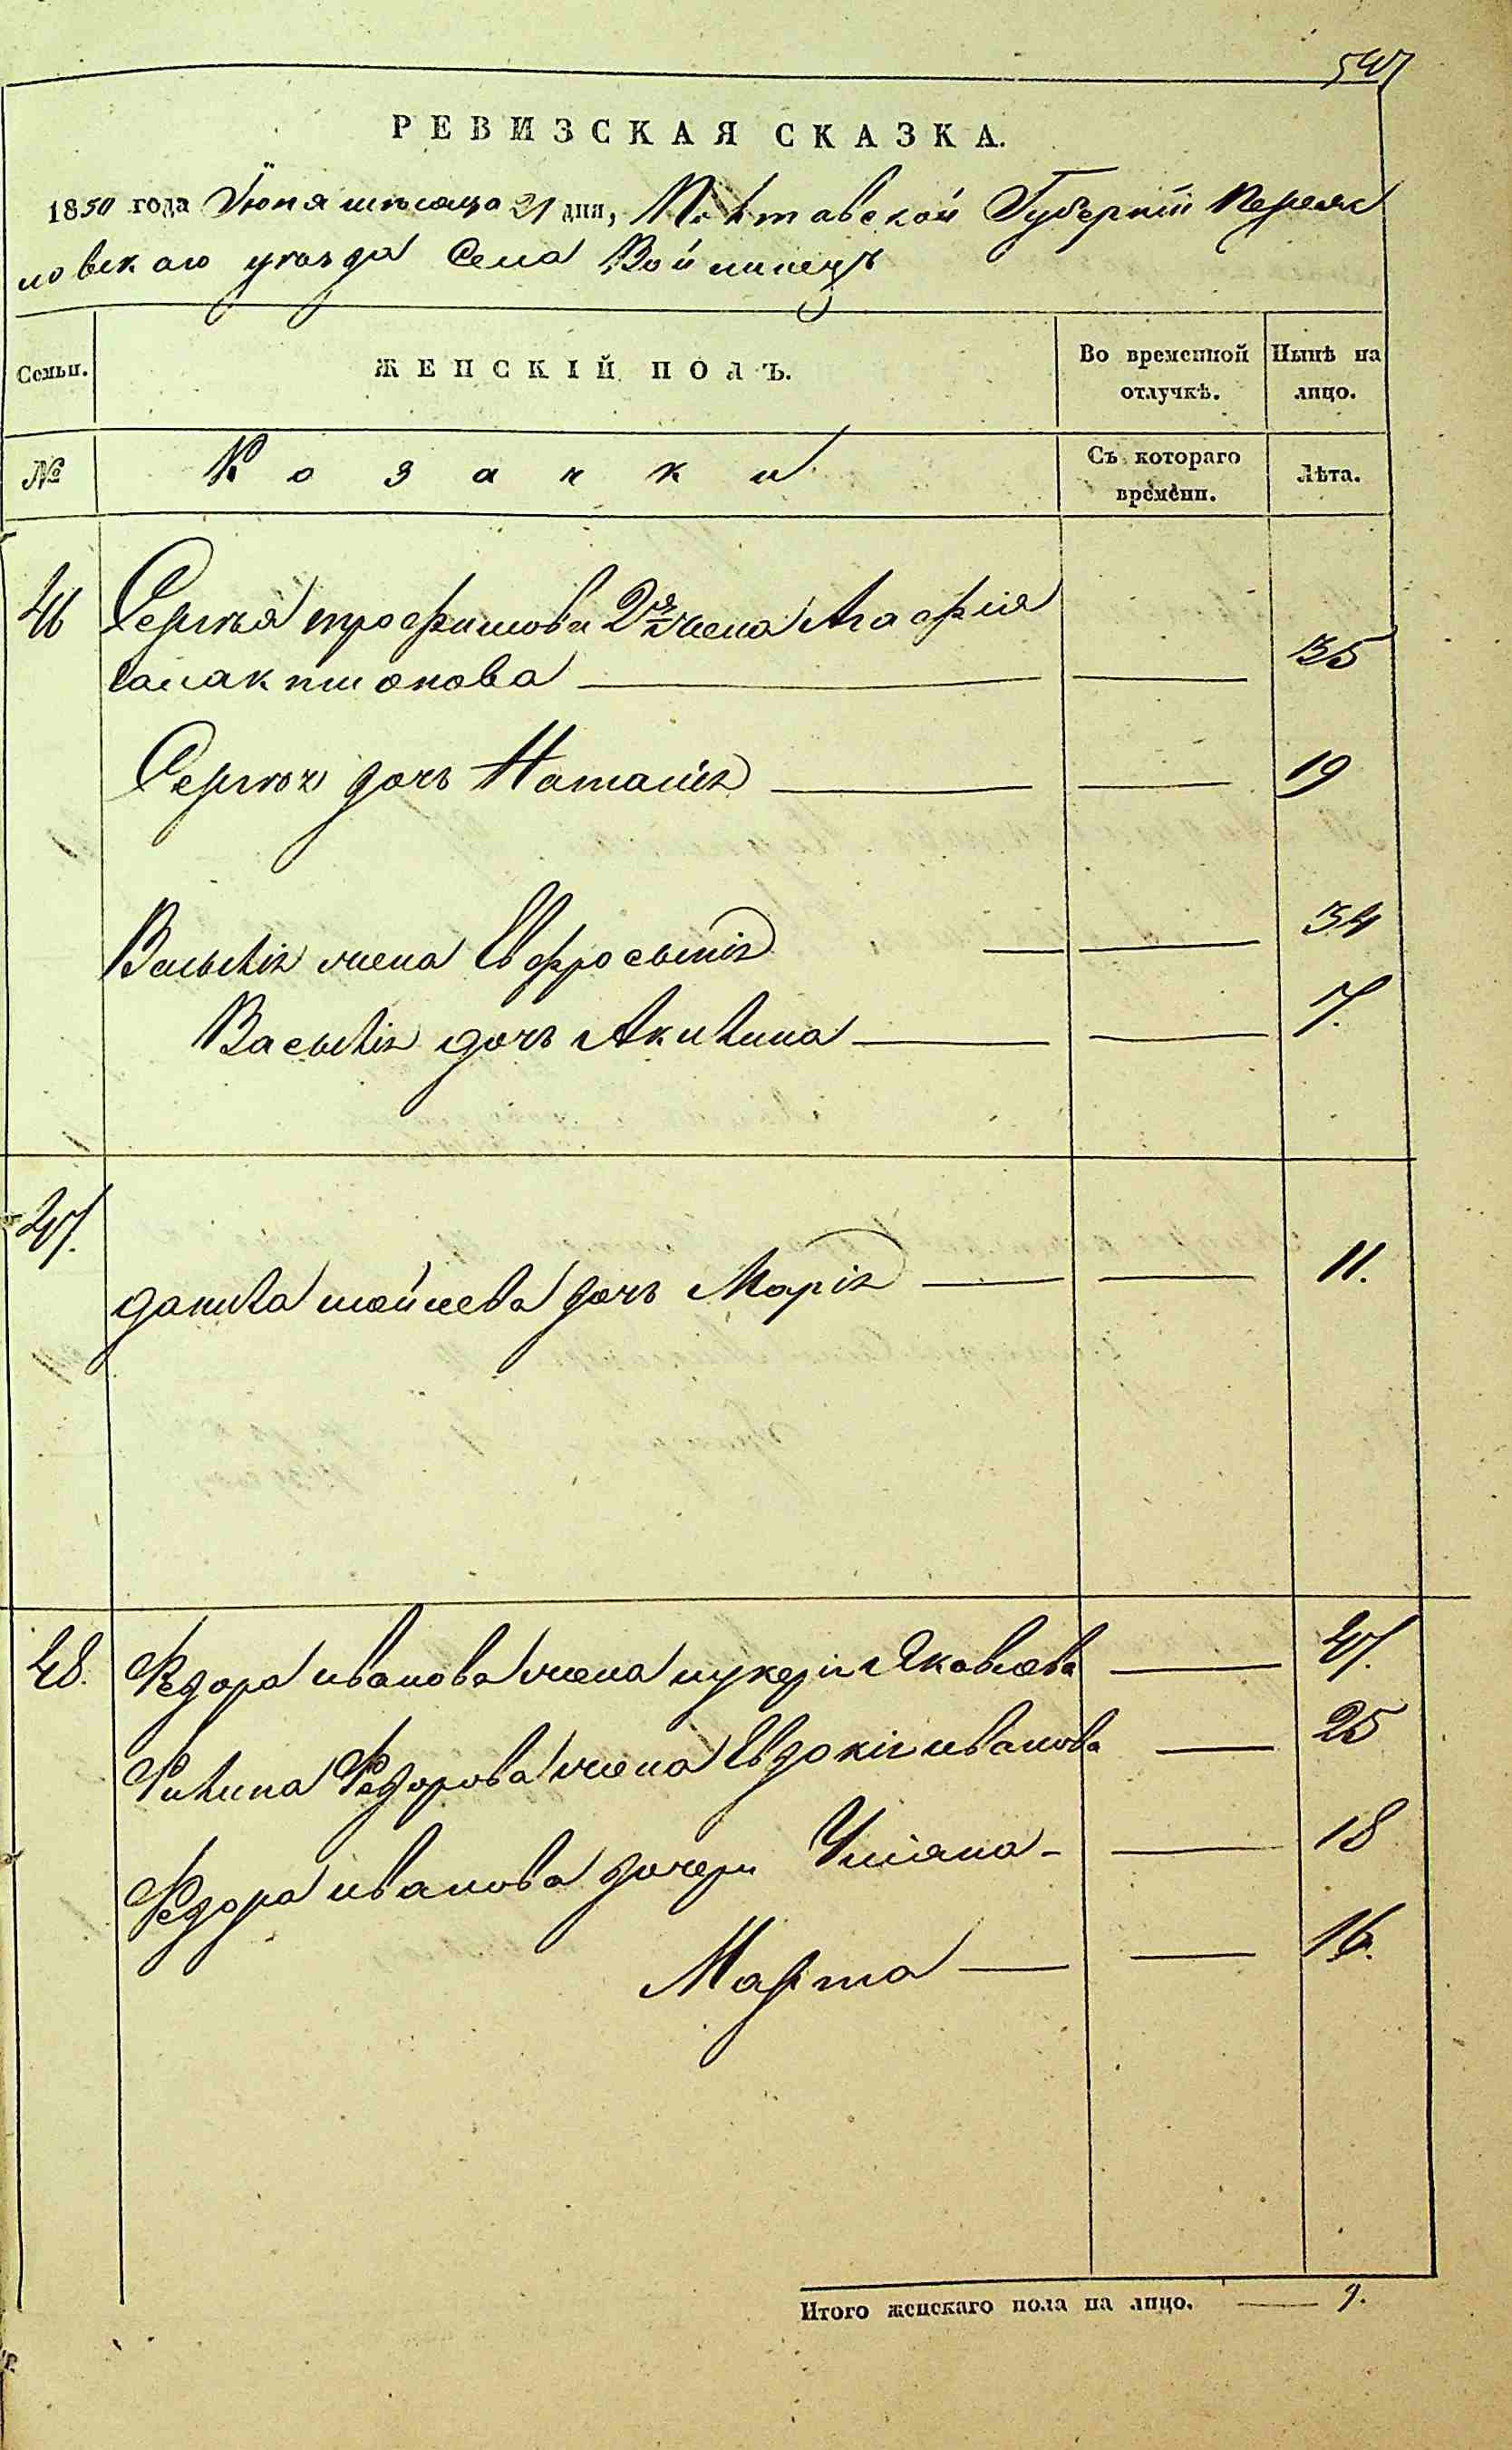 547
РЕВИЗСКАЯ СКАЗКА.
1850 года Июня месяца 21 дня, Полтавской Губерніи Переяс
ловского уезда Села Войинець
Семьи. ЖЕНСКІЙ ПОЛЪ. Во временной отлучкѣ. Нынѣ на лицо.
№ Козачки Съ котораго времени. Лѣта.
46 Сергея трофимова 2я жена Агафия
галактионова 35
Сергея дочь Наталия 19
Василія жена Евфросинія 34
Василія дочь Акилина 7.
47. данила мойсеева дочь Марія 11.
48. Федора иванова жена лукерія Яковлева 47.
Филипа Федорова жена Евдокія иванова 25
Федора иванова дочери Уліяна 18
Марта 16.
Итого женскаго пола на лицо. 9.